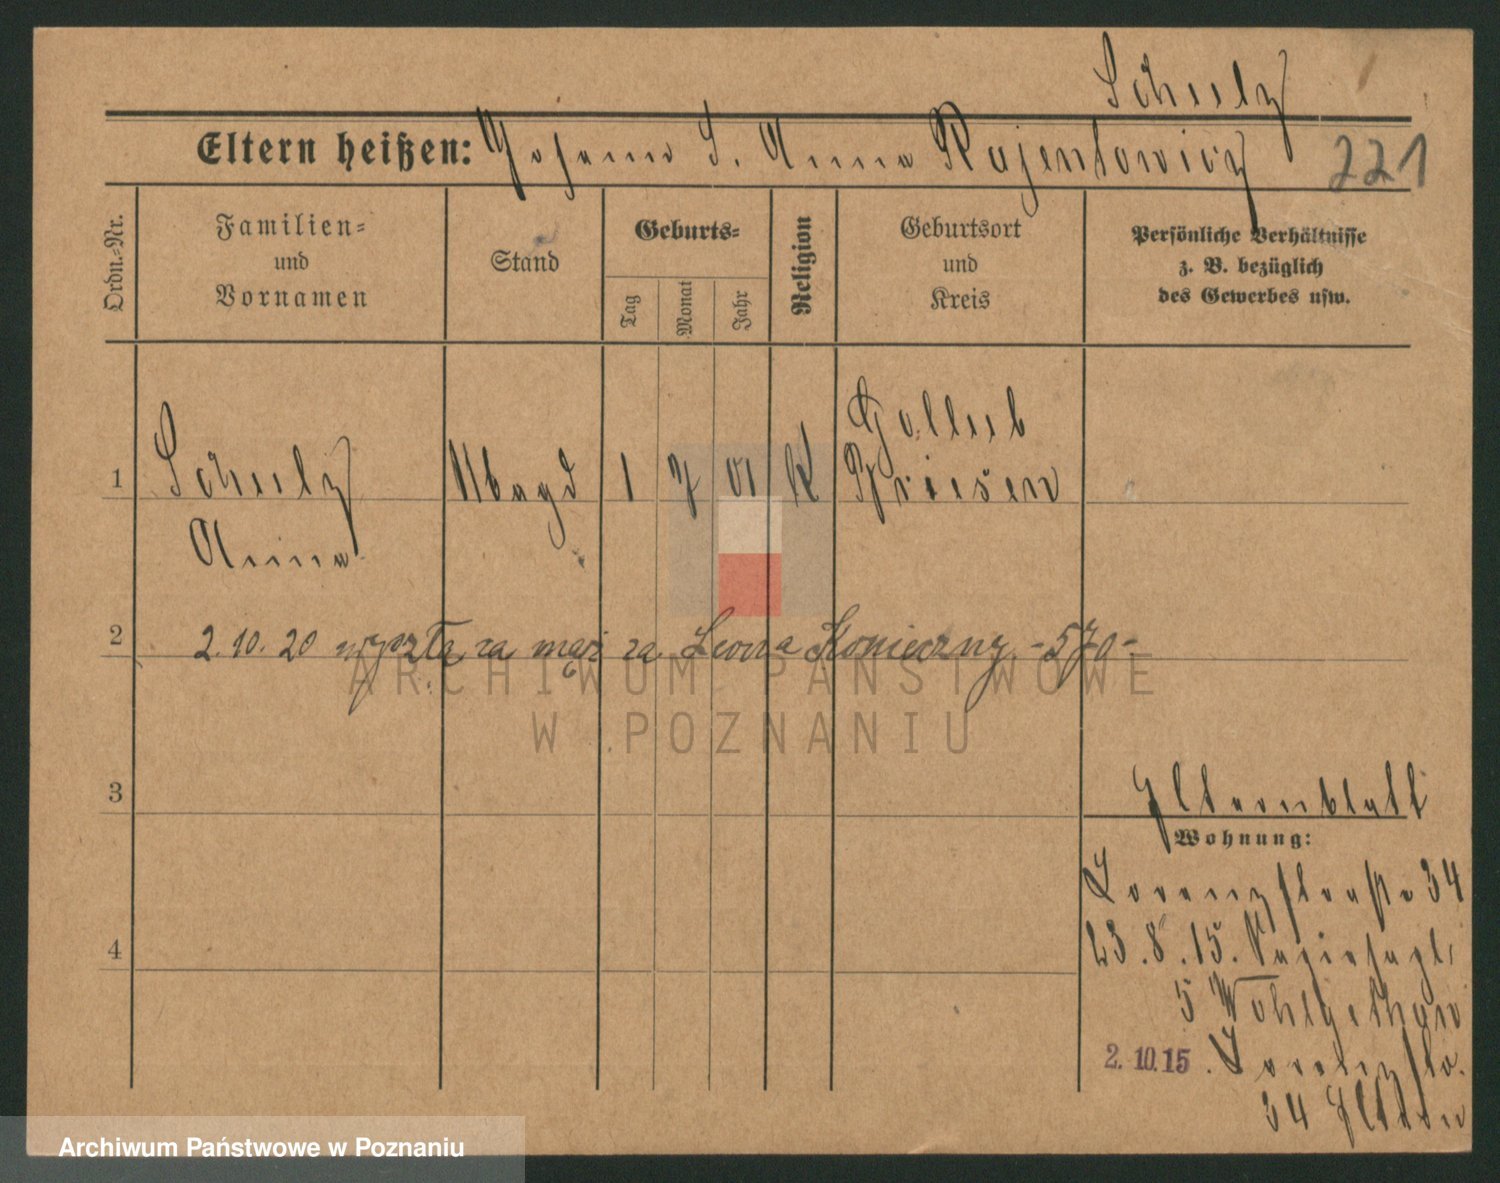 Schulz
Eltern heißen: Johann S. Anna Rajentowicz 221
Ordn.-Nr.
Familien- und Vornamen
Stand
Geburts-
Tag
Monat
Jahr
Religion
Geburtsort und Kreis
Persönliche Verhältnisse
z. B. bezüglich
des Gewerbes usw.
Gollub
1 Schulz Magd 1 7 01 K Briesen
Anna
2 2.10.20 wyszła za mąż za Leona Konieczny -570-
ARCHIWUM PAŃSTWOWE
W POZNANIU
3 Elternblatt
Wohnung:
Lorenzstraße 34
4 23.8.15.
5 Wohlgethan
2.10.15. Lorenzstr.
34 Eltern
Archiwum Państwowe w Poznaniu